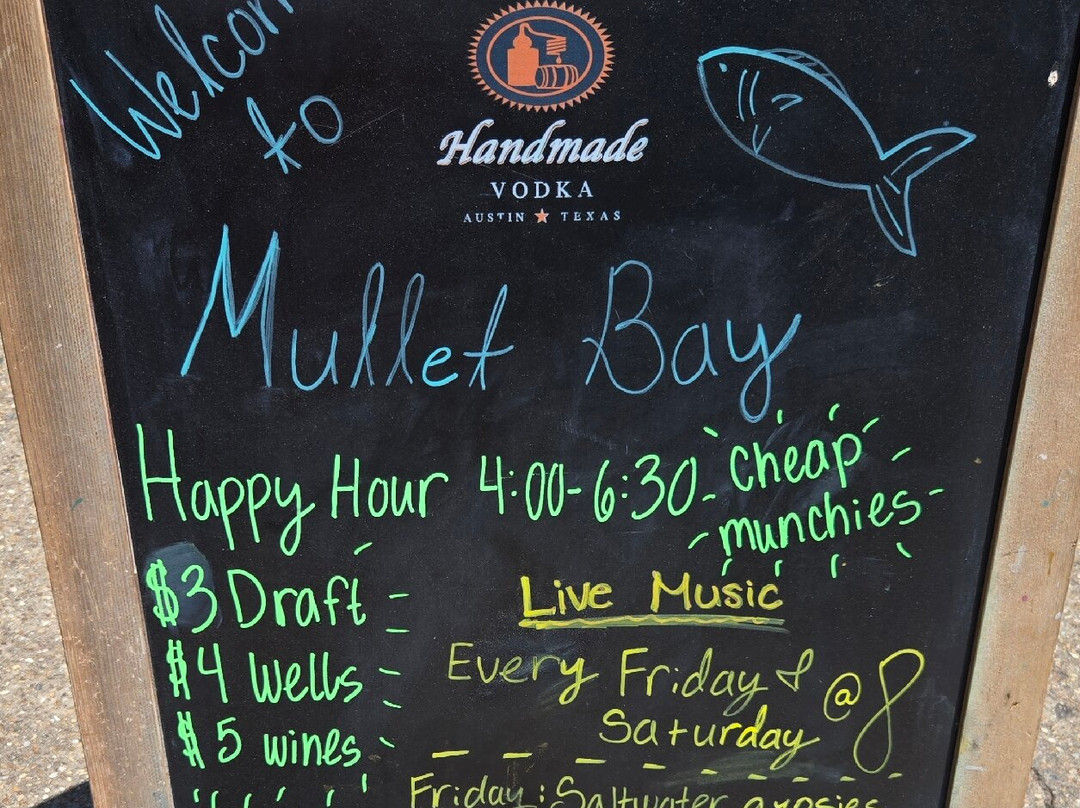 Welcom
to
Handmade
VODKA
AUSTIN ★ TEXAS
Mullet Bay
Happy Hour 4:00-6:30
cheap
munchies
$3 Draft
$4 Wells
$5 wines
Live Music
Every Friday &
Saturday @ 8
Friday: Saltwater gypsies